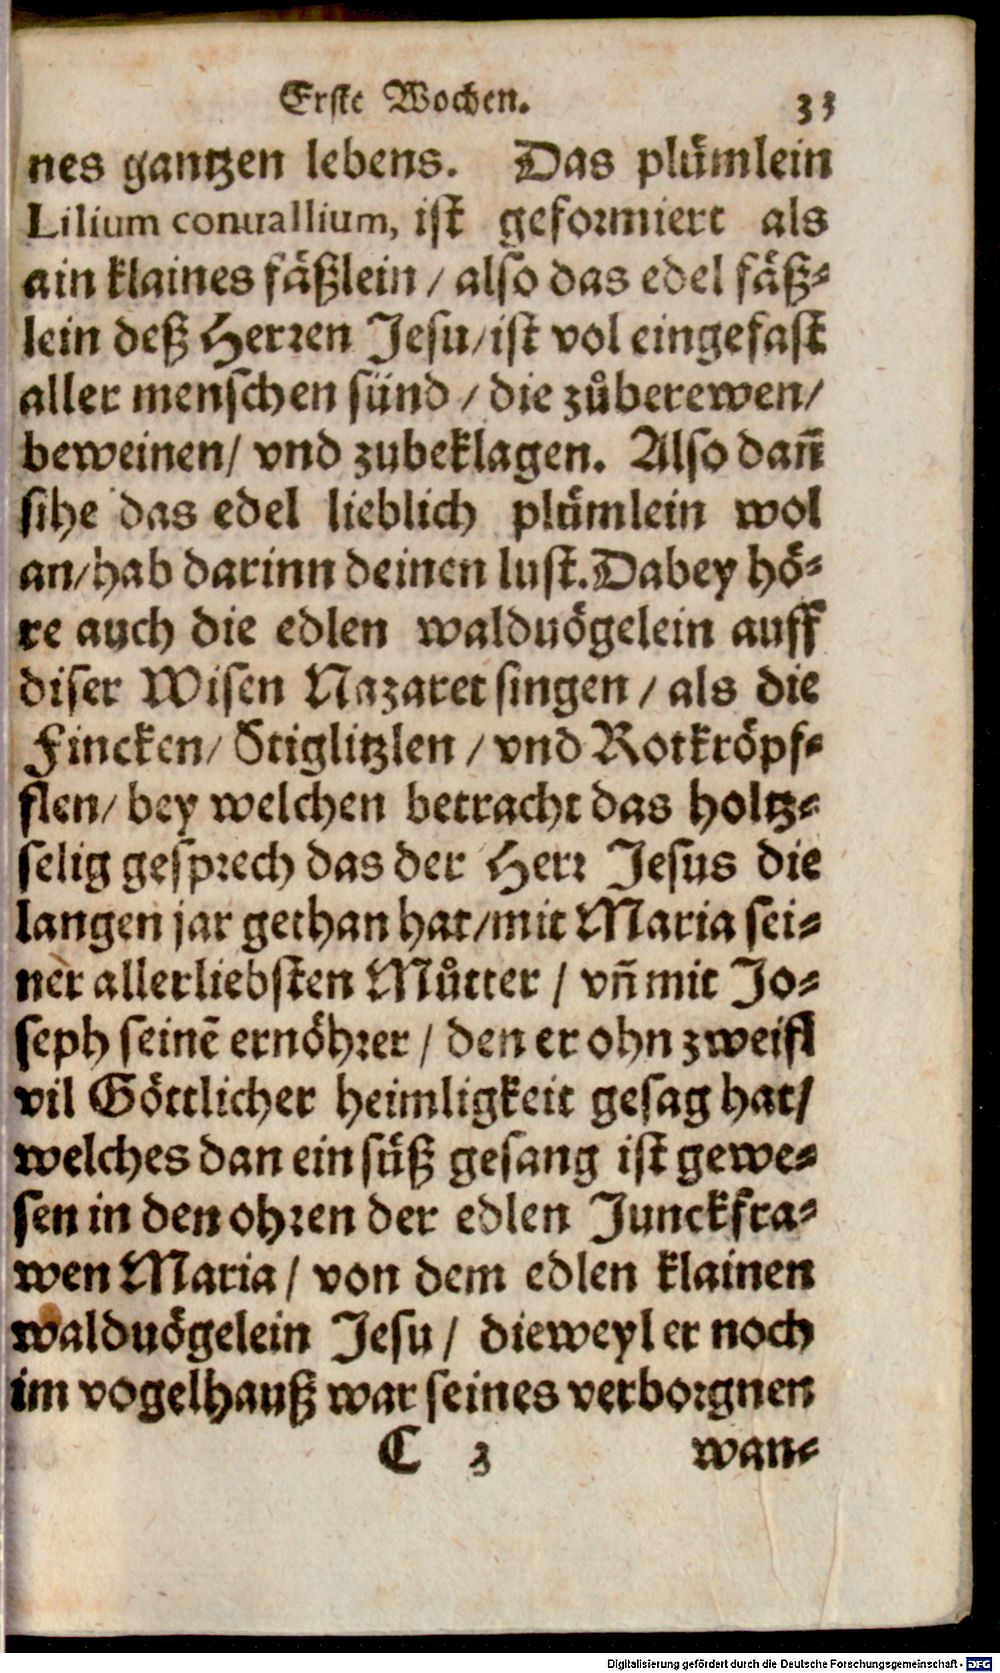 Erste Wochen. 33
nes gantzen lebens. Das plümlein
Lilium conuallium, ist geformiert als
ain klaines fäßlein / also das edel fäß-
lein deß Herren Jesu / ist vol eingefast
aller menschen sünd / die zůberewen /
beweinen / vnd zubeklagen. Also dañ
sihe das edel lieblich plümlein wol
an / hab darinn deinen lust. Dabey hö-
re auch die edlen walduögelein auff
diser Wisen Nazaret singen / als die
Fincken / Stiglitzlen / vnd Rotkröpf-
flen / bey welchen betracht das holtz-
selig gesprech das der Herr Jesus die
langen jar gethan hat / mit Maria sei-
ner allerliebsten Můtter / vñ mit Jo-
seph seinē ernöhrer / den er ohn zweifl
vil Göttlicher heimligkeit gesag hat /
welches dan ein süß gesang ist gewe-
sen in den ohren der edlen Junckfra-
wen Maria / von dem edlen klainen
walduögelein Jesu / dieweyl er noch
im vogelhauß war seines verborgnen
C 3 wan-
Digitalisierung gefördert durch die Deutsche Forschungsgemeinschaft - DFG